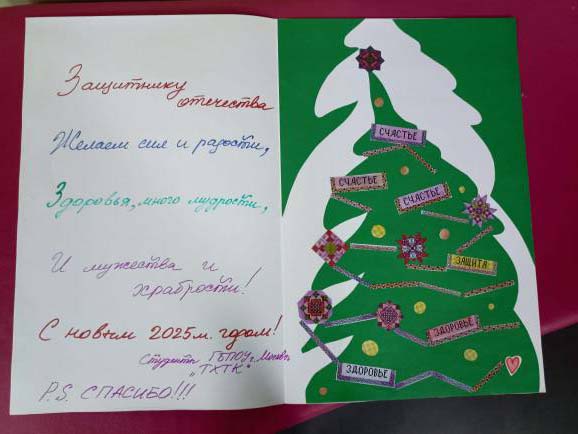 Защитнику
отечества
Желаем сил и радости,
Здоровья, много мудрости,
И мужества и
храбрости!
С новым 2025м. годом!
Студенты ГБПОУ г. Москвы
"ТХТК"
P.S. СПАСИБО!!!
СЧАСТЬЕ
СЧАСТЬЕ
СЧАСТЬЕ
ЗАЩИТА
ЗДОРОВЬЕ
ЗДОРОВЬЕ